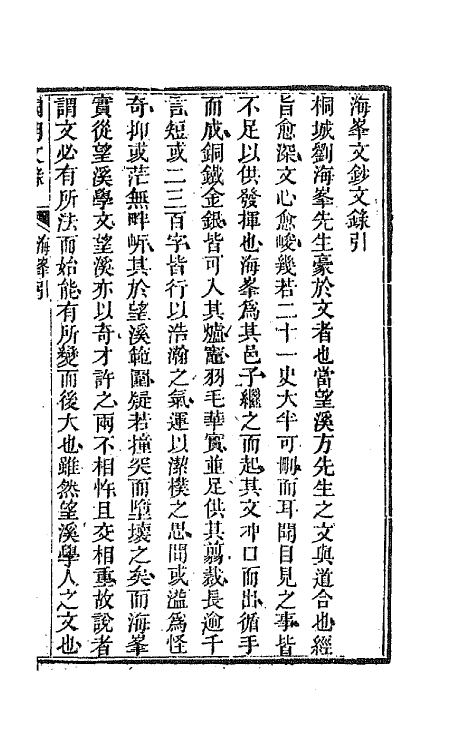 海峯文鈔文錄引
桐城劉海峯先生豪於文者也當望溪方先生之文與道合也經
旨愈深文心愈峻幾若二十一史大半可刪而耳聞目見之事皆
不足以供發揮也海峯爲其邑子繼之而起其文冲口而出循手
而成銅鐵金銀皆可入其爐竈羽毛華實並足供其翦裁長逾千
言短或二三百字皆行以浩瀚之氣運以潔樸之思間或溢爲怪
奇抑或茫無畔岸其於望溪範圍疑若撞突而墮壞之矣而海峯
實從望溪學文望溪亦以奇才許之兩不相忤且交相重故說者
謂文必有所法而始能有所變而後大也雖然望溪學人之文也
國朝文錄 海峯引